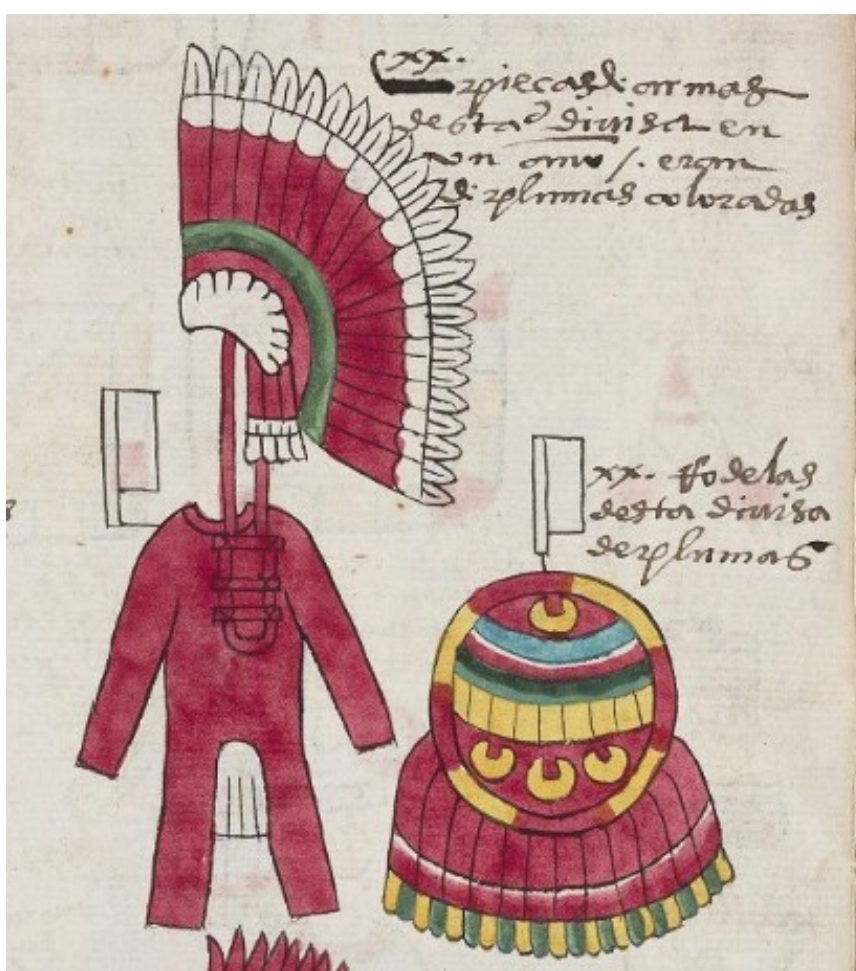 xx.
pieças de armas
desta divisa en
un año /. eran
de plumas coloradas
xx. Rodelas
desta divisa
de plumas